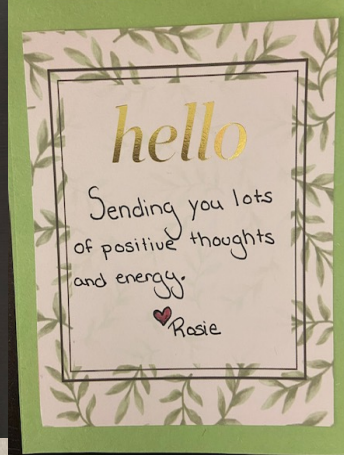 hello
Sending you lots
of positive thoughts
and energy.
Rosie